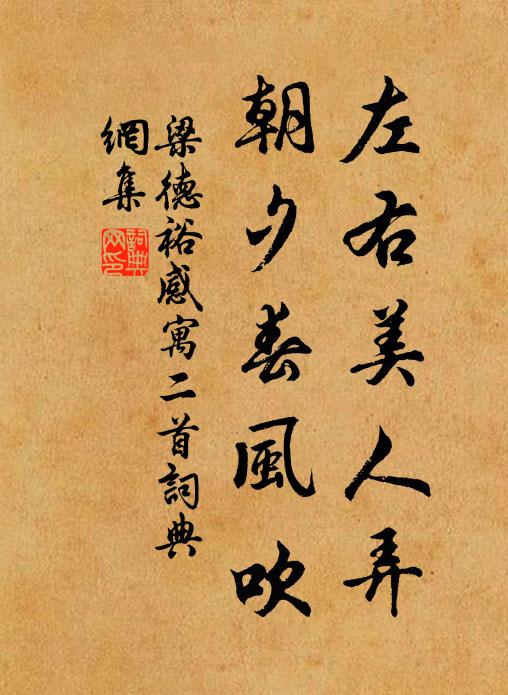 左右美人弄
朝夕春風吹
梁德裕感寓二首詞典
網集
詞典
网印